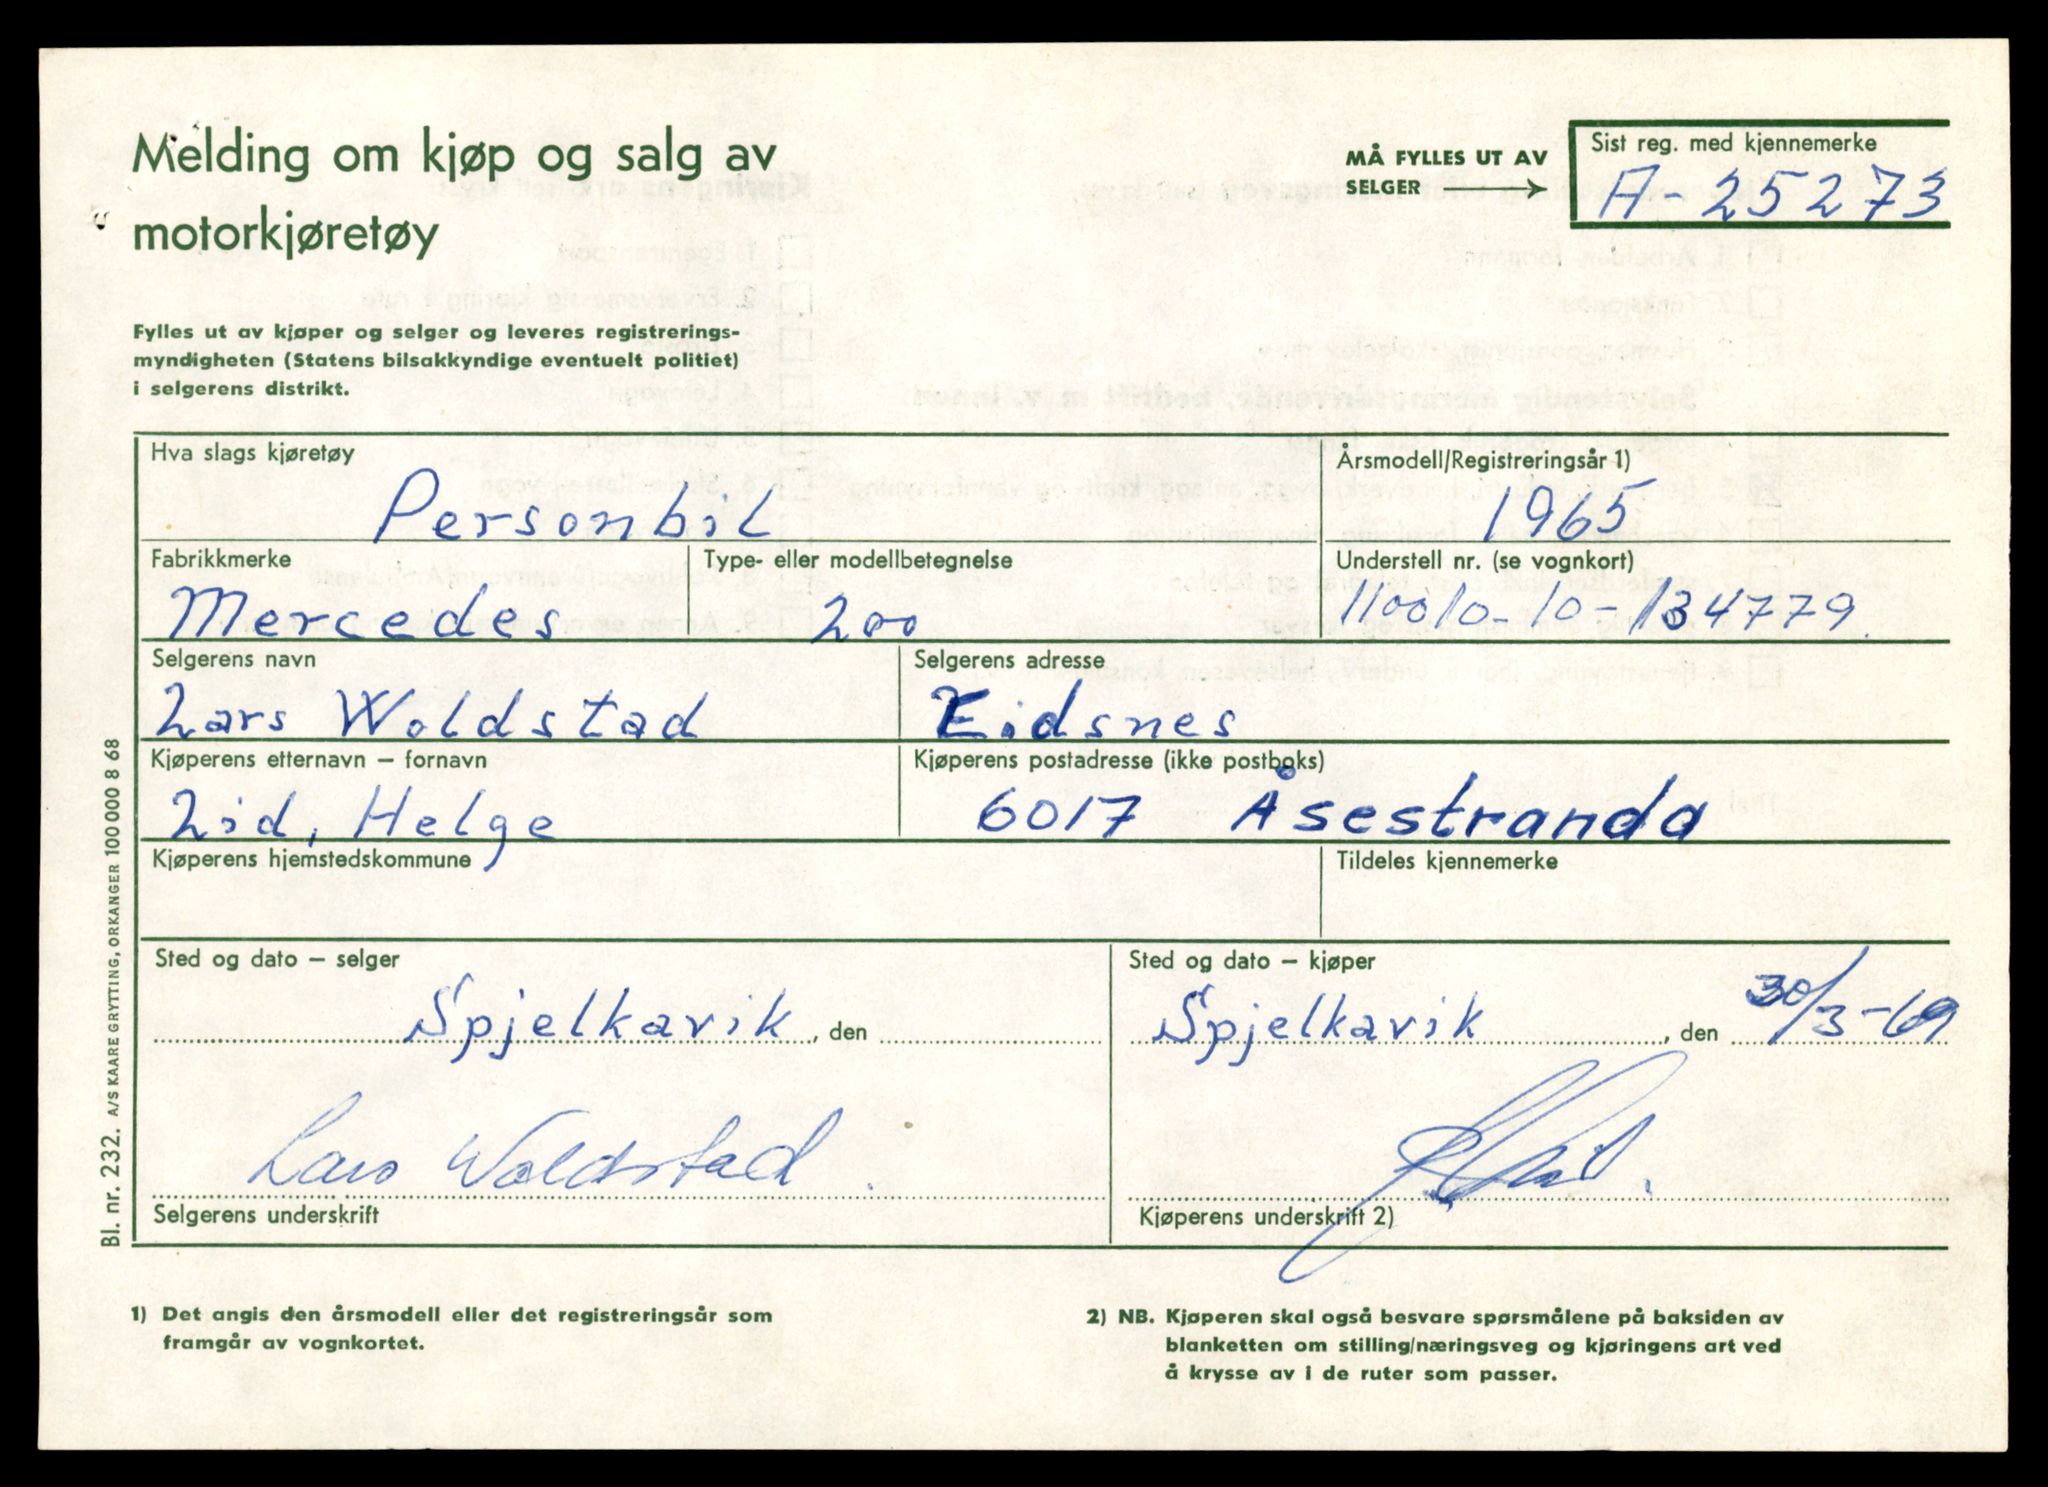 Melding om kjøp og salg av
motorkjøretøy
MÅ FYLLES UT AV
SELGER
Sist reg. med kjennemerke
A-25273
Fylles ut av kjøper og selger og leveres registrerings-
myndigheten (Statens bilsakkyndige eventuelt politiet)
i selgerens distrikt.
Hva slags kjøretøy
Personbil
Årsmodell/Registreringsår 1)
1965
Fabrikkmerke
Mercedes
Type- eller modellbetegnelse
200
Understell nr. (se vognkort)
110010-10-134779.
Selgerens navn
Lars Woldstad
Selgerens adresse
Eidsnes
Kjøperens etternavn – fornavn
Lid, Helge
Kjøperens postadresse (ikke postboks)
6017 Åsestranda
Kjøperens hjemstedskommune
Tildeles kjennemerke
Sted og dato – selger
Spjelkavik, den
Sted og dato – kjøper
Spjelkavik, den 30/3-69
Lars Woldstad.
Selgerens underskrift
Kjøperens underskrift 2)
1) Det angis den årsmodell eller det registreringsår som
framgår av vognkortet.
2) NB. Kjøperen skal også besvare spørsmålene på baksiden av
blanketten om stilling/næringsveg og kjøringens art ved
å krysse av i de ruter som passer.
Bl. nr. 232. A/S KAARE GRYTTING, ORKANGER 100 000 8 68